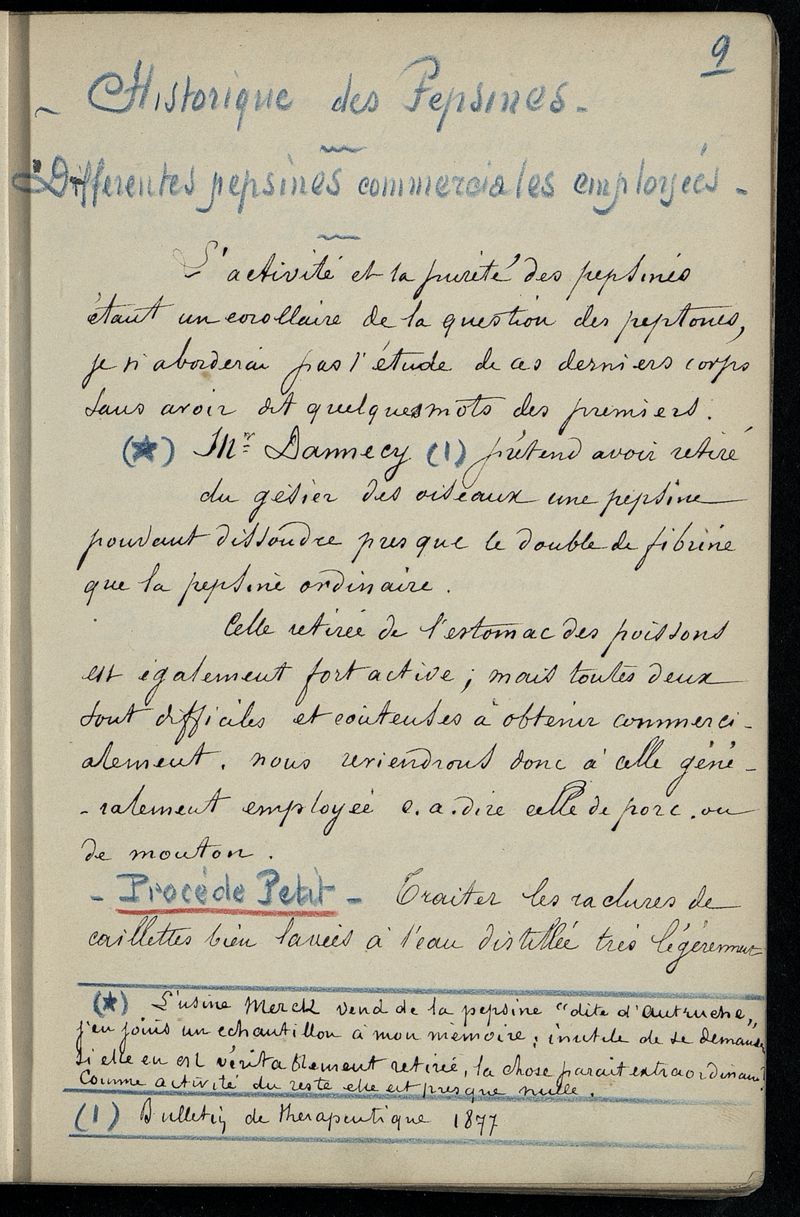 9
- Historique des Pepsines -
Differentes pepsines commerciales employées -
L'activité et la pureté des pepsines
étant un corollaire de la question des peptones,
je n'aborderai pas l'étude de ces derniers corps
sans avoir dit quelques mots des premiers.
(*) Mr Dannecy (1) prétend avoir retiré
du gésier des oiseaux une pepsine
pouvant dissoudre presque le double de fibrine
que la pepsine ordinaire.
Celle retirée de l'estomac des poissons
est également fort active ; mais toutes deux
sont difficiles et couteuses à obtenir commerci-
alement. nous reviendrons donc à celle géné-
-ralement employée c.a.dire celle de porc. ou
de mouton.
- Procédé Petit - Traiter les raclures de
caillettes bien lavées à l'eau distillée très légèrement
(*) L'usine Merck vend de la pepsine "dite d'autruche„
j'en joins un echantillon à mon mémoire ; inutile de se demander
si elle en est véritablement retirée, la chose parait extraordinaire!
Comme activité du reste elle est presque nulle.
(1) Bulletin de therapeutique 1877